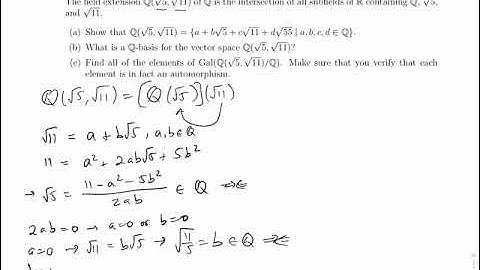 The field extension ℚ(√5, √11) of ℚ is the intersection of all subfields of ℝ containing ℚ, √5,
and √11.
(a) Show that ℚ(√5, √11) = {a + b√5 + c√11 + d√55 | a, b, c, d ∈ ℚ}.
(b) What is a ℚ-basis for the vector space ℚ(√5, √11)?
(c) Find all of the elements of Gal(ℚ(√5, √11)/ℚ). Make sure that you verify that each
element is in fact an automorphism.
ℚ(√5, √11) = [ℚ(√5)](√11)
√11 = a + b√5, a,b∈ℚ
11 = a² + 2ab√5 + 5b²
→ √5 = (11 - a² - 5b²) / 2ab ∈ ℚ ⇒⇐
2ab = 0 → a=0 or b=0
a=0 → √11 = b√5 → √(11/5) = b ∈ ℚ ⇒⇐